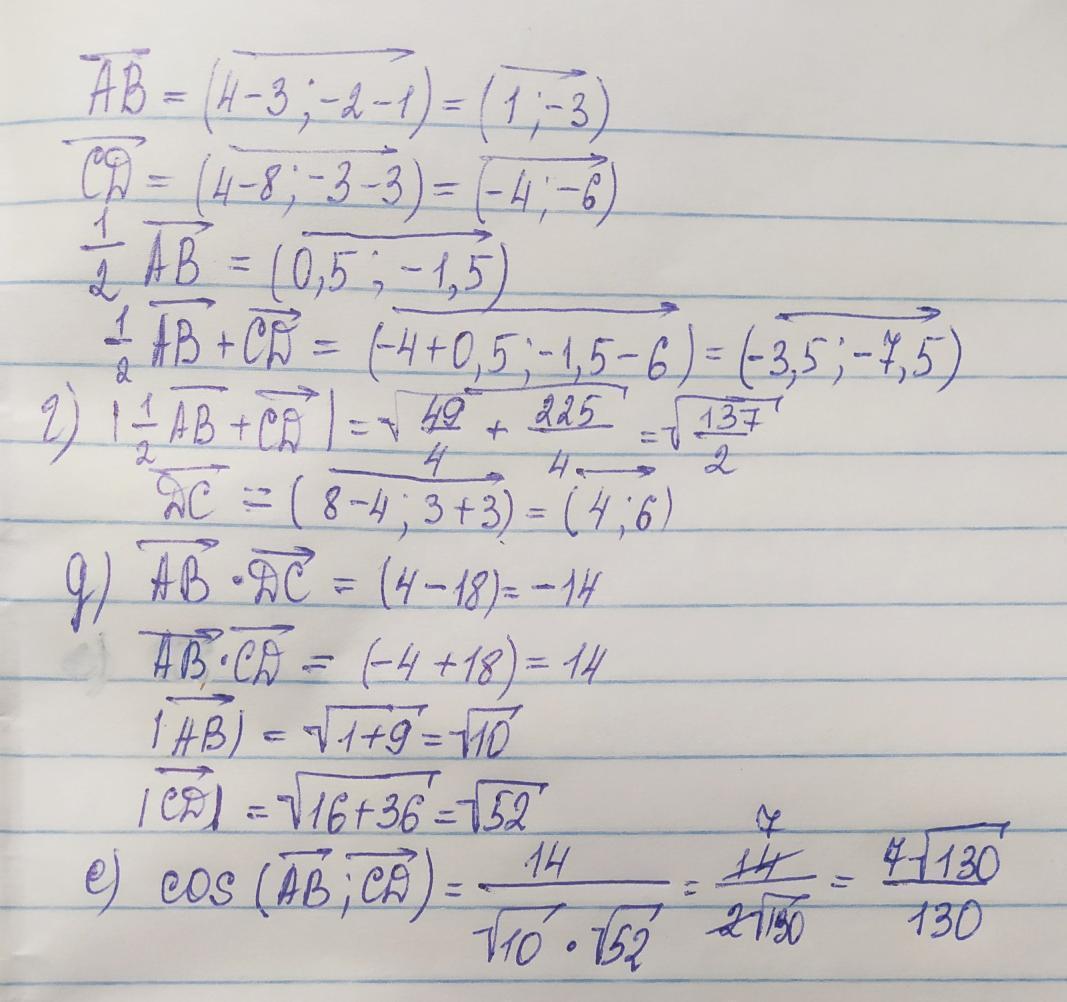 AB = (4-3; -2-1) = (1; -3)
CD = (4-8; -3-3) = (-4; -6)
1/2 AB = (0,5; -1,5)
1/2 AB + CD = (-4+0,5; -1,5-6) = (-3,5; -7,5)
г) |1/2 AB + CD| = √(49/4 + 225/4) = √(137/2)
DC = (8-4; 3+3) = (4; 6)
д) AB · DC = (4-18) = -14
AB · CD = (-4+18) = 14
|AB| = √(1+9) = √10
|CD| = √(16+36) = √52
е) cos (AB; CD) = 14/(√10 · √52) = 14/(2√130) 7 = 7√130/130